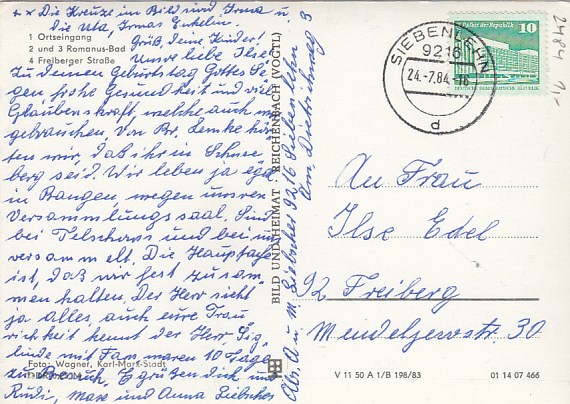 x x Die Kreuze im Bild sind Irma u.
Die Uta, Irmas Enkelin.
Grüß, deine Kinder!
1 Ortseingang
2 und 3 Romanus-Bad
4 Freiberger Straße
Unsre liebe Ilse
Zu deinem Geburtstag Gottes Se-
gen frohe Gesundheit und viel
Glaubenskraft, welche auch wir
gebrauchen. Von Br. Lemke hör-
ten wir, daß ihr in Schnee-
berg seid. Wir leben ja egal
in Bangen, wegen unsren
Versammlungssaal. Sind
bei und bei uns
versammelt. Die Hauptsache
ist, daß wir fest zusam-
men halten. Der Herr sieht
ja alles, auch eure Trau-
richkeit kennt der Herr, Sig-
linde mit Fam waren 10 Tage
zu Besuch. Es grüßen dich und
Rudi, Max und Anna Liebscher
Foto: Wagner, Karl-Marx-Stadt
BILD UND HEIMAT REICHENBACH (VOGTL)
Abs. A u. M. Liebscher 9216 Siebenlehn
Am Dietrichweg 3
SIEBENLEHN
9216
24.-7.84.-16
d
Palast der Republik
10
DEUTSCHE DEMOKRATISCHE REPUBLIK
2484
1,-
An Frau
Ilse Edel
92 Freiberg
Mendelejewstr. 30
V 11 50 A 1/B 198/83
01 14 07 466